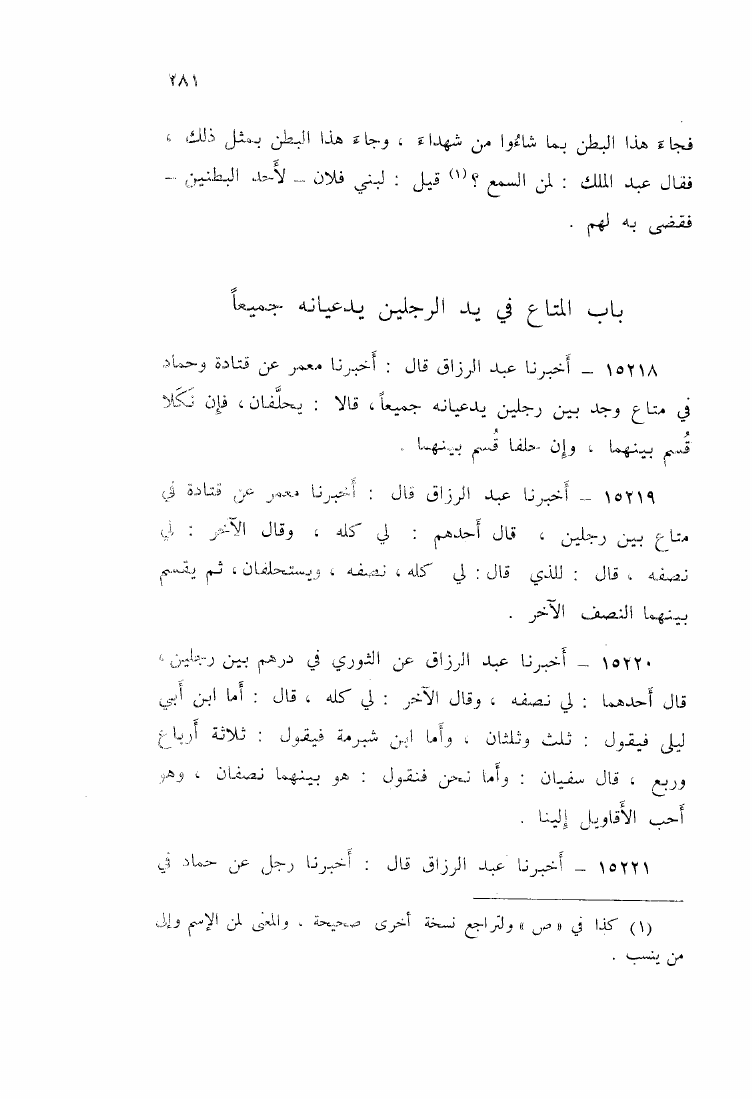 ٢٨١
فجاءَ هذا البطن بما شاءُوا من شهداءَ ، وجاءَ هذا البطن بمثل ذلك ،
فقال عبد الملك : لمن السمع ؟(١) قيل : لبني فلان – لأَحد البطنين –
فقضى به لهم .
باب المتاع في يد الرجلين يدعيانه جميعاً
١٥٢١٨ – أَخبرنا عبد الرزاق قال : أَخبرنا معمر عن قتادة وحماد
في متاع وجد بين رجلين يدعيانه جميعاً، قالا : يحلَّفان، فإن نَكَلا
قُسم بينهما ، وإن حلفا قُسم بينهما .
١٥٢١٩ – أَخبرنا عبد الرزاق قال : أَخبرنا معمر عن قتادة في
متاع بين رجلين ، قال أَحدهم : لي كله ، وقال الآخر : لي
نصفه ، قال : للذي قال : لي كله، نصفه ، ويستحلفان، ثم يقسم
بينهما النصف الآخر .
١٥٢٢٠ – أَخبرنا عبد الرزاق عن الثوري في درهم بين رجلين،
قال أَحدهما : لي نصفه ، وقال الآخر : لي كله ، قال : أَما ابن أَبي
ليلى فيقول : ثلث وثلثان ، وأَما ابن شبرمة فيقول : ثلاثة أَرباع
وربع ، قال سفيان : وأَما نحن فنقول : هو بينهما نصفان ، وهو
أَحب الأَقاويل إلينا .
١٥٢٢١ – أَخبرنا عبد الرزاق قال : أَخبرنا رجل عن حماد في
(١) كذا في « ص » ولتراجع نسخة أخرى صحيحة ، والمعنى لمن الإسم وإلى
من ينسب .